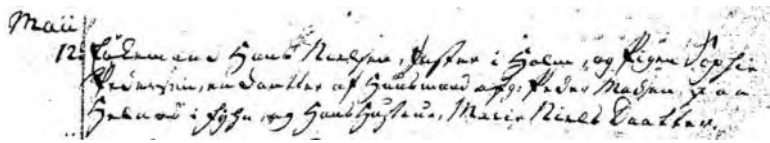 Maii
12. Enkemand Hans Nielsen, Inster i Holm, og Pigen Sophie
Pedersen, en daatter af Huusmand afg: Peder Madsen paa
i Fyhn og Hans Hustrue, Marie Niels Daatter.